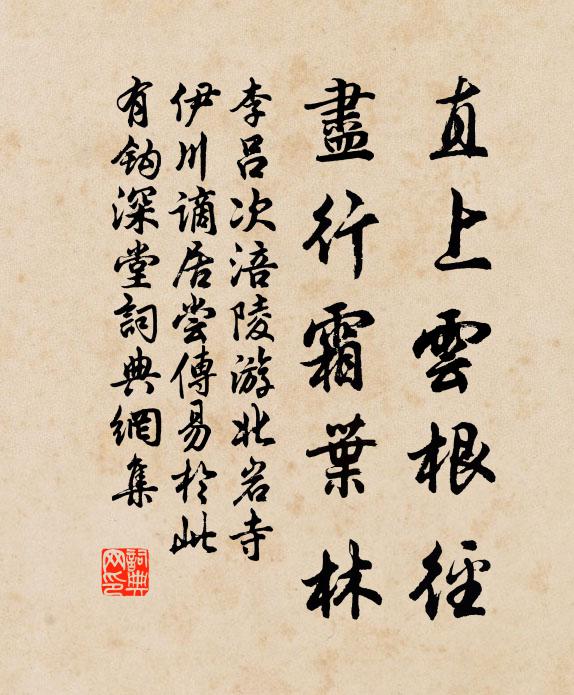 直上雲根徑
盡行霜葉林
李呂次涪陵游北岩寺
伊川謫居嘗傳易於此
有鈎深堂詞典網集
詞典网印